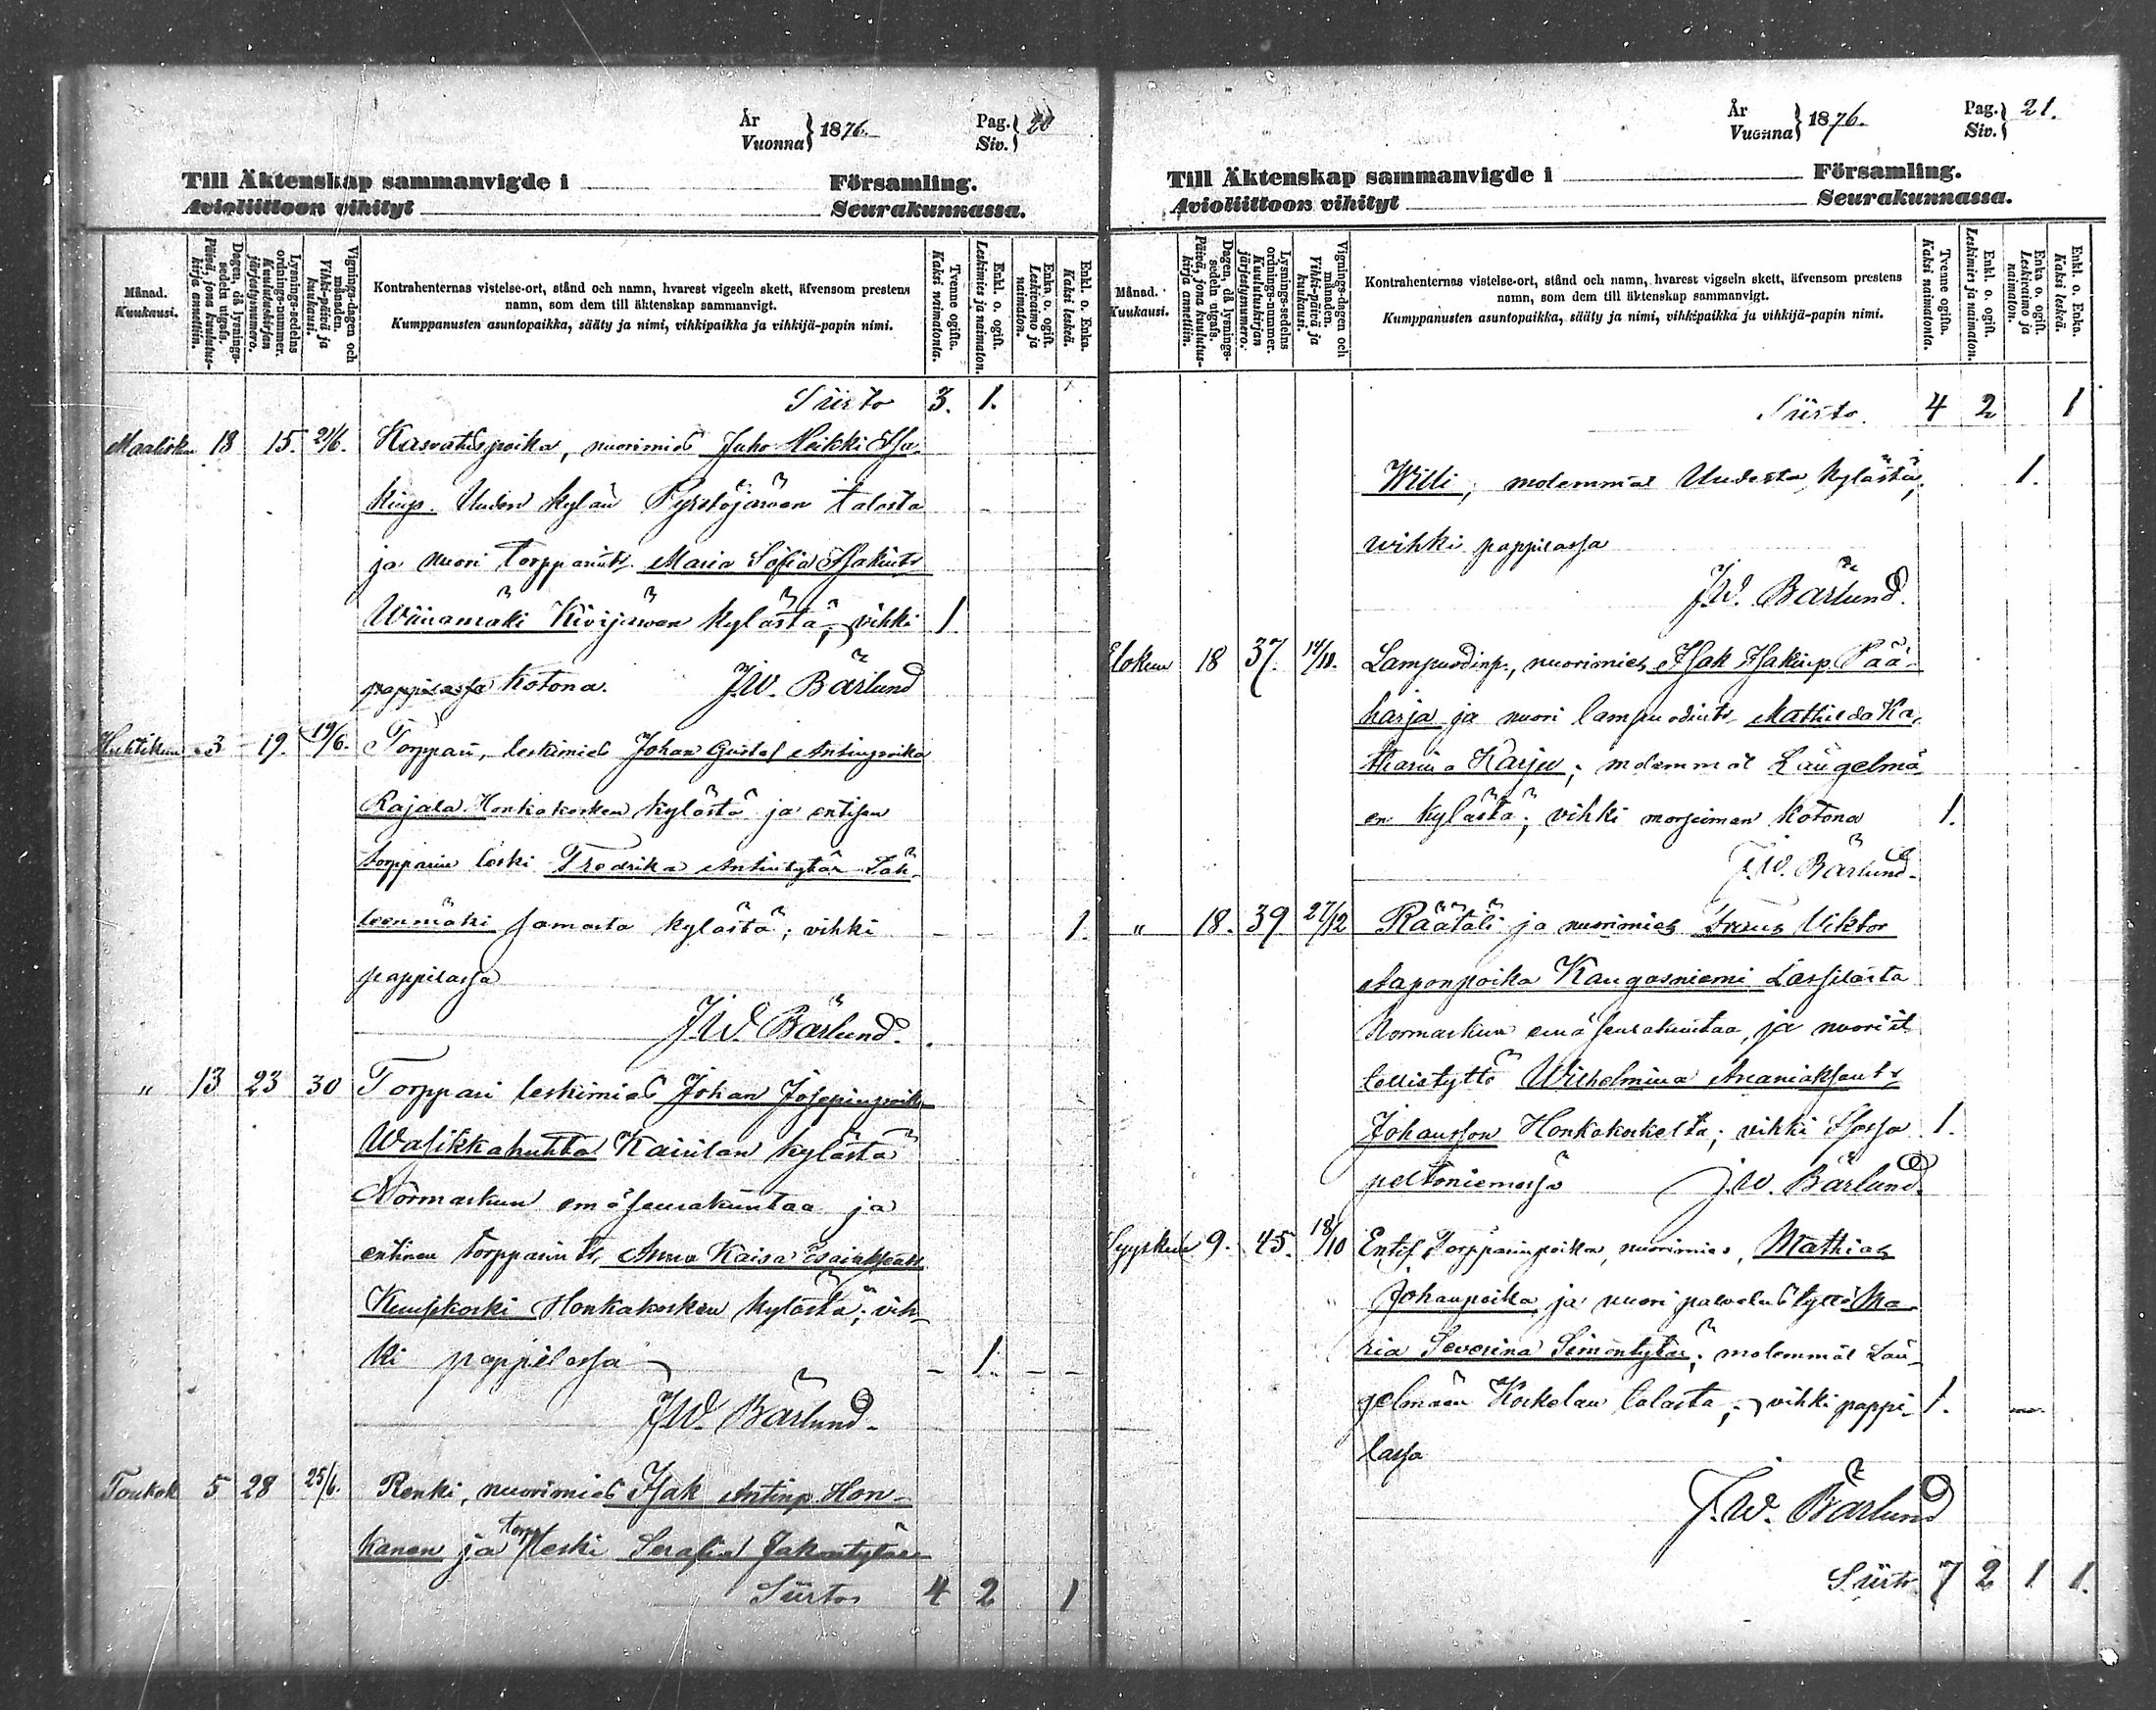 År
Vuonna } 1876.
Pag.
Siv. } 20
Till Äktenskap sammanvigde i Församling.
Avioliittoon vihityt Seurakunnassa.
Månad.
Kuukausi.
Dagen, då lysnings-
sedeln utgafs.
Päivä, jona kuulutus-
kirja annettiin.
Lysnings-sedelns
ordnings-nummer.
Kuulutuskirjan
järjestysnumero.
Vignings-dagen och
månaden.
Vihki-päivä ja
kuukausi.
Kontrahenternas vistelse-ort, stånd och namn, hvarest vigseln skett, äfvensom prestens
namn, som dem till äktenskap sammanvigt.
Kumppanusten asuntopaikka, sääty ja nimi, vihkipaikka ja vihkijä-papin nimi.
Tvenne ogifta.
Kaksi naimatonta.
Enkl. o. ogift.
Leskimies ja naimaton.
Enka o. ogift.
Leskivaimo ja
naimaton.
Enkl. o. Enka.
Kaksi leskeä.
Siirto 3. 1.
Maalisku 18 15. 21/6. Kasvatuspoika, nuorimies Juho Heikki Isa-
kinp. Uuden kylän Pyrstöjärven talosta
ja nuori torpparint. Maria Sofia Isakint.
Wäinämäki Kivijärven kylästä; vihki 1
pappilassa kotona. J.W. Bärlund
Huhtikuu 3 19. 19/6. Torppari, leskimies Johan Gustaf Antinpoika
Rajala Honkakosken kylästä ja entisen
torpparin leski Fredrika Antintytär Läh-
teenmäki samasta kylästä; vihki 1.
pappilassa
J.W. Bärlund.
" 13 23 30 Torppari leskimies Johan Josepinpoika
Wasikkahuhta Kairilan kylästä
Normarkun emäseurakuntaa ja
entinen torpparint. Anna Kaisa Esaiaksent.
Kuuskoski Honkakosken kylästä; vih-
ki pappilassa 1.
J.W. Bärlund.
Toukok 5 28 25/6. Renki, nuorimies Isak Antinp. Hon-
kanen ja torp. leski Serafia Jakontytär
Siirto 4 2 1
År
Vuonna } 1876.
Pag.
Siv. } 21.
Till Äktenskap sammanvigde i Församling.
Avioliittoon vihityt Seurakunnassa.
Månad.
Kuukausi.
Dagen, då lysnings-
sedeln utgafs.
Päivä, jona kuulutus-
kirja annettiin.
Lysnings-sedelns
ordnings-nummer.
Kuulutuskirjan
järjestysnumero.
Vignings-dagen och
månaden.
Vihki-päivä ja
kuukausi.
Kontrahenternas vistelse-ort, stånd och namn, hvarest vigseln skett, äfvensom prestens
namn, som dem till äktenskap sammanvigt.
Kumppanusten asuntopaikka, sääty ja nimi, vihkipaikka ja vihkijä-papin nimi.
Tvenne ogifta.
Kaksi naimatonta.
Enkl. o. ogift.
Leskimies ja naimaton.
Enka o. ogift.
Leskivaimo ja
naimaton.
Enkl. o. Enka.
Kaksi leskeä.
Siirto. 4 2 1
Willi; molemmat Uudesta kylästä; 1.
vihki pappilassa
J.W. Bärlund.
Elokuu 18 37. Lampuodinp., nuorimies Isak Isakinp. Pää-
harja ja nuori lampuodint. Mathilda Ka-
tharina Karju; molemmat Längelmä-
en kylästä; vihki morsiamen kotona 1.
J.W. Bärlund.
" 18. 39 27/12 Räätäli ja nuorimies Frans Viktor
Aaponpoika Kangasniemi Lassilasta
Normarkun emäseurakuntaa, ja nuori it
sellistyttö Wilhelmina Ananiaksent.
Johansson Honkakoskelta; vihki Isossa 1.
peltoniemessä J.W. Bärlund.
Syyskuu 9. 45. 18/10 Entis. Torpparinpoika, nuorimies, Mathias
Johanpoika ja nuori palvelustyttö Ma-
ria Severina Simontytär; molemmat Län-
gelmäen Koskelan talosta; vihki pappi- 1.
lassa
J.W. Bärlund
Siirto 7 2 1 1.